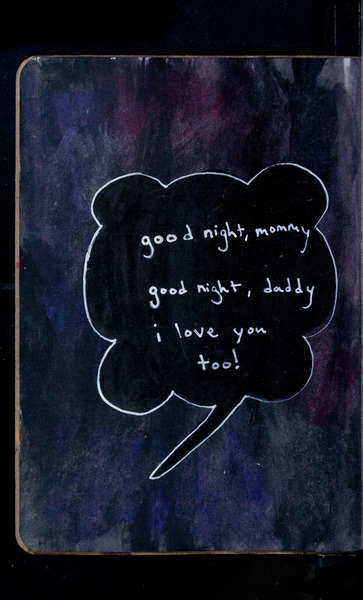 good night, mommy
good night, daddy
i love you
too!